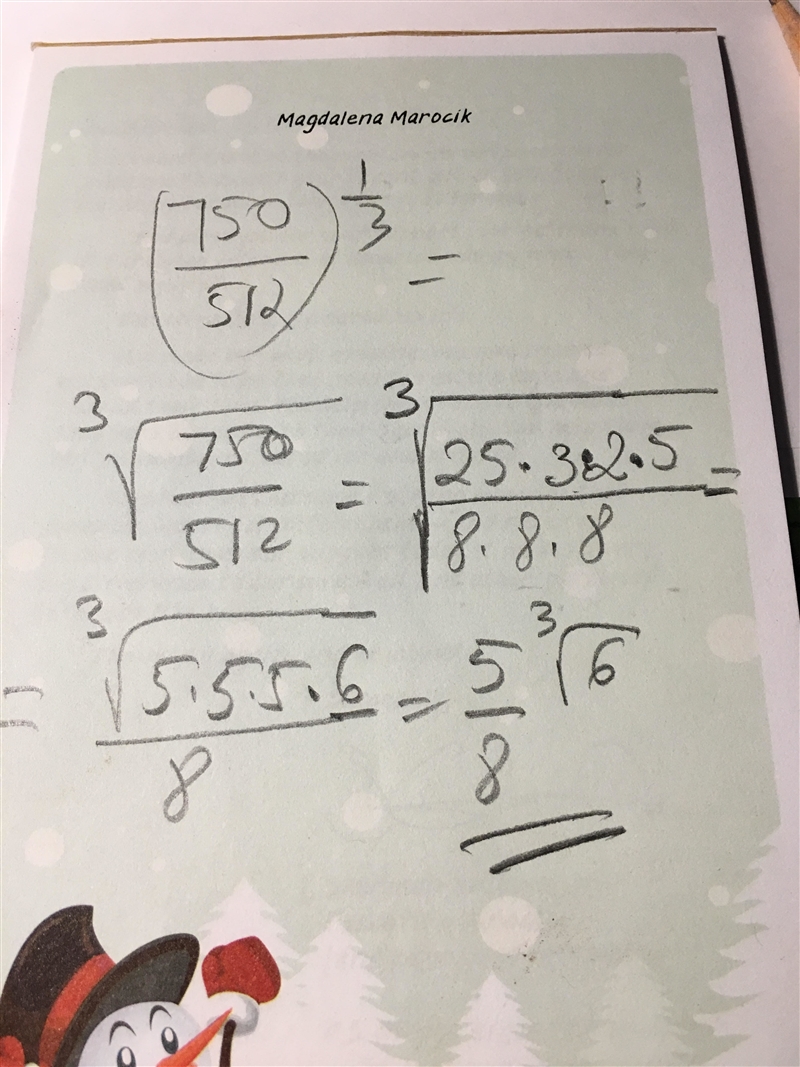 Magdalena Marocik
(750/512)^(1/3) =
∛(750/512) = ∛((25·3·2·5)/(8·8·8)) =
= ∛(5·5·5·6)/8 = 5/8 ∛6